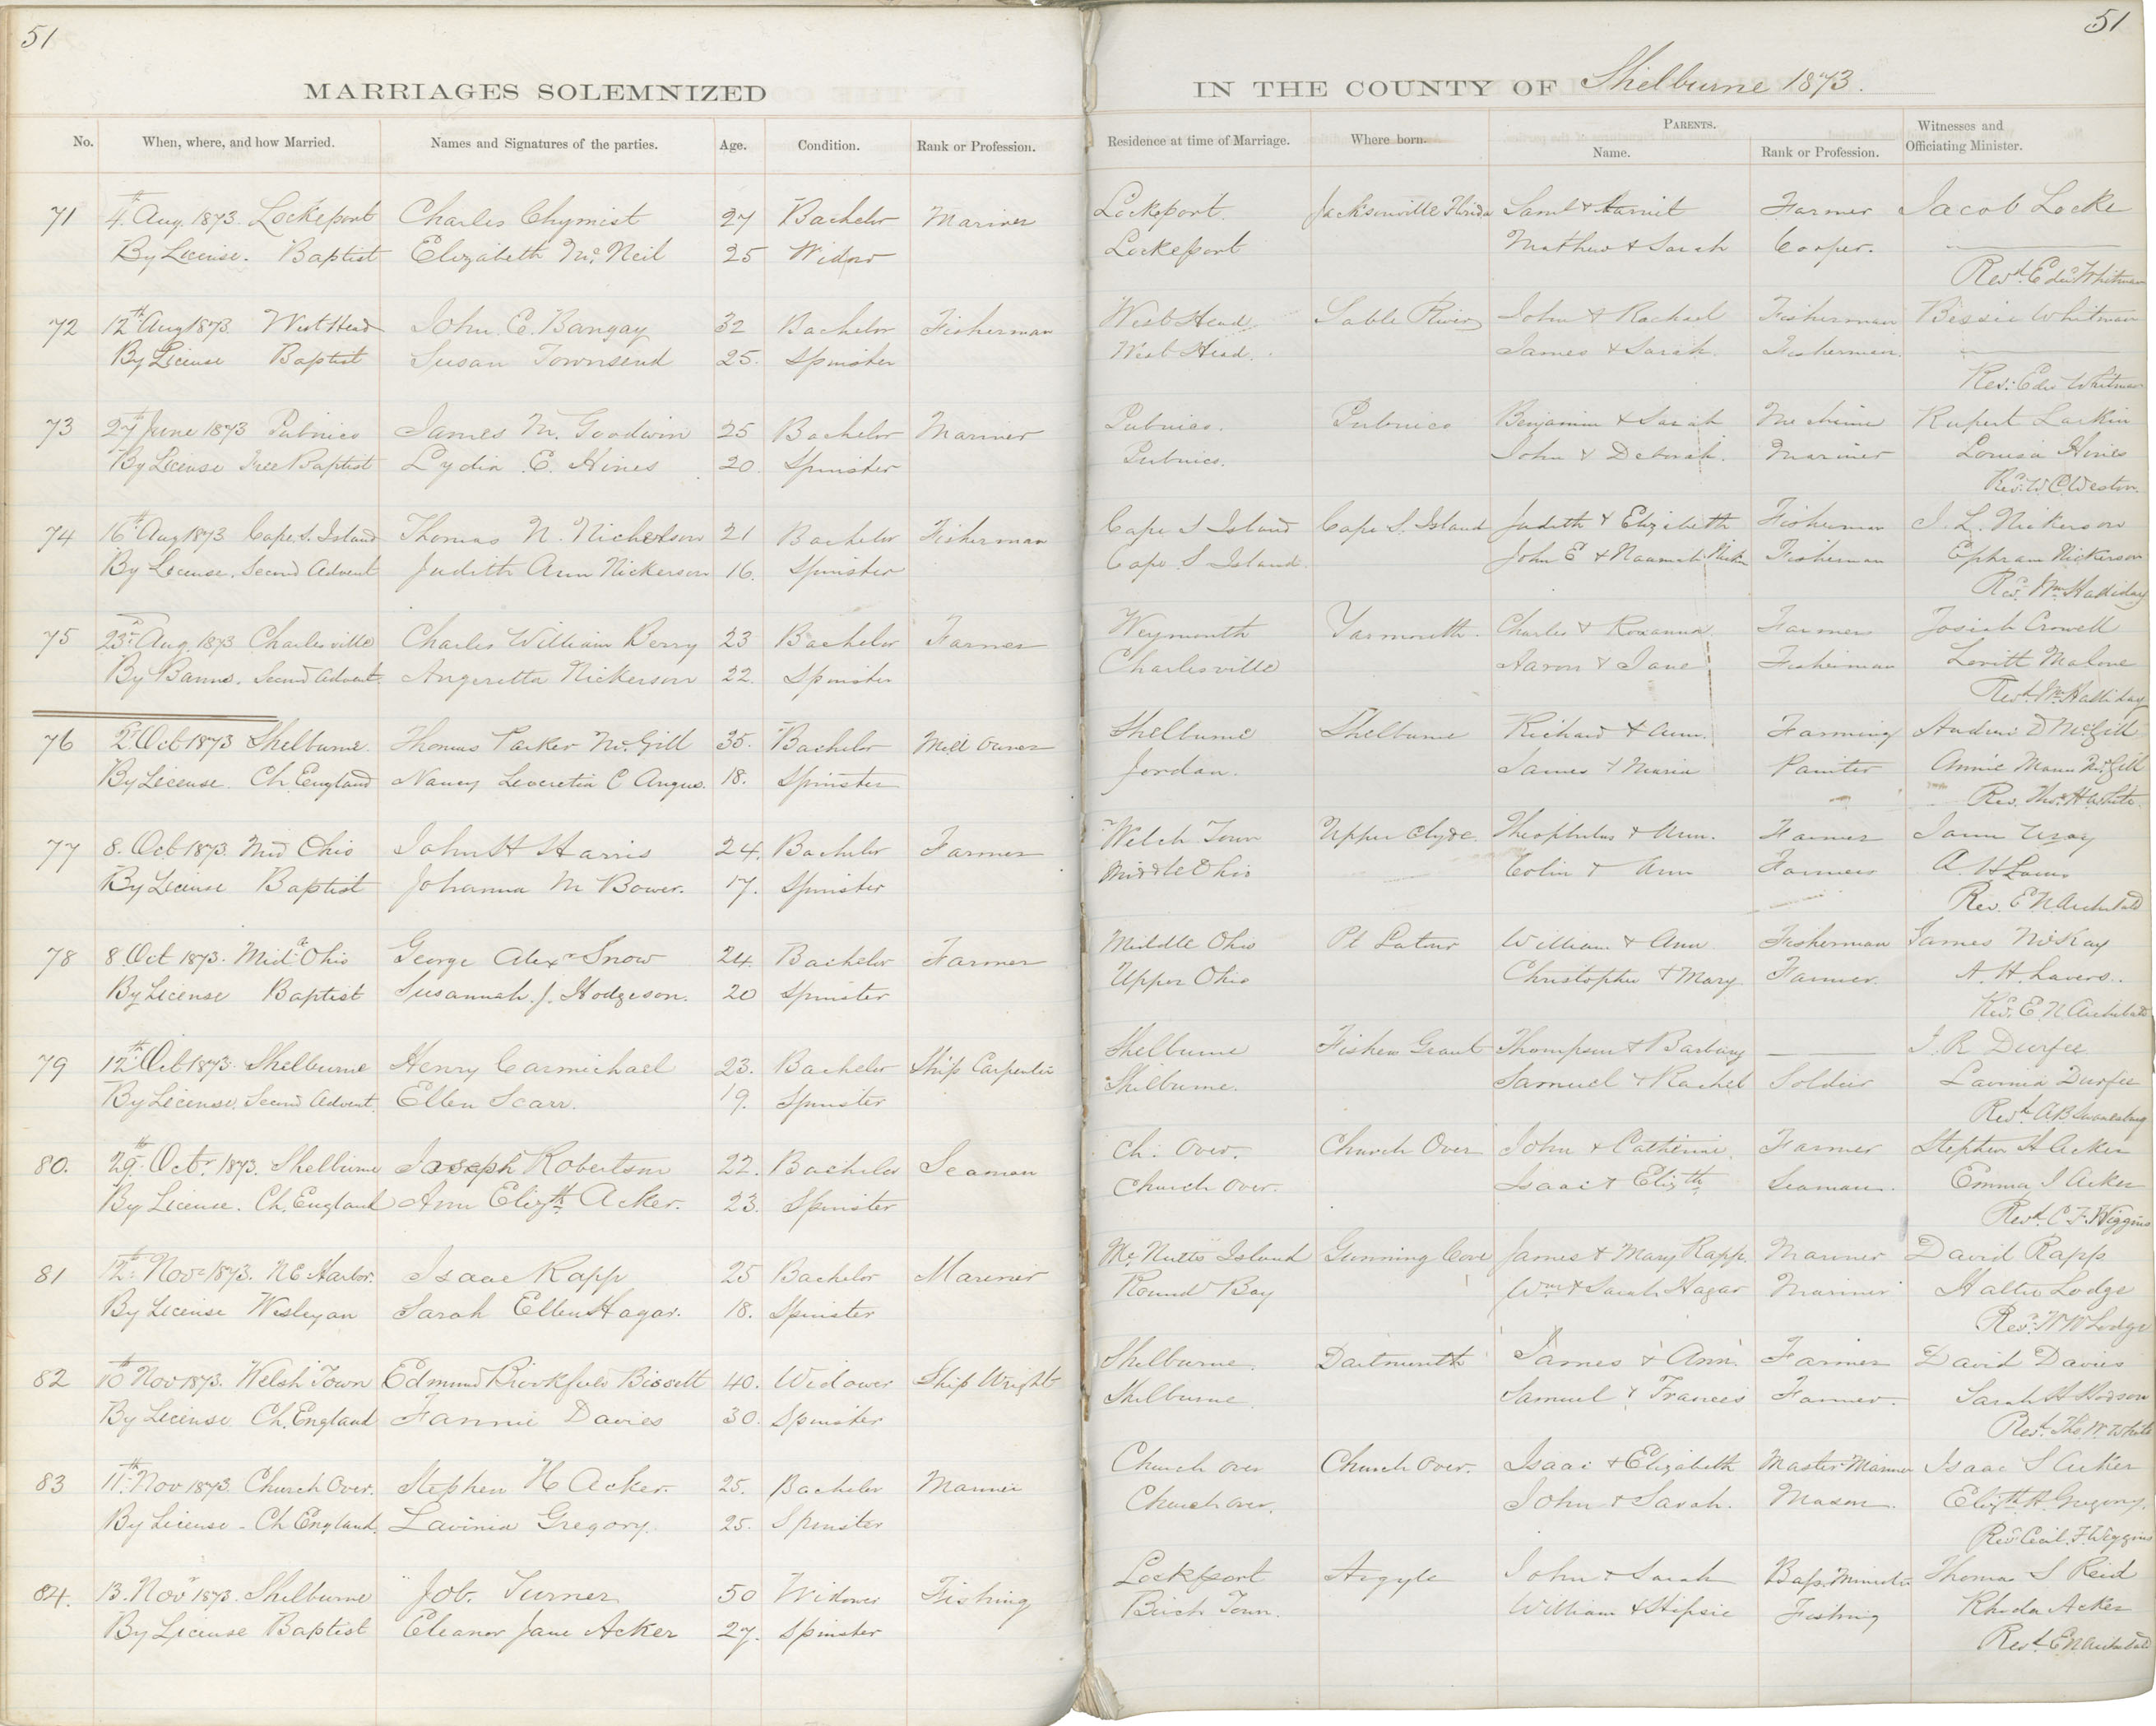 51
51
MARRIAGES SOLEMNIZED
IN THE COUNTY OF Shelburne 1873.
No. When, where, and how Married. Names and Signatures of the parties. Age. Condition. Rank or Profession. Residence at time of Marriage. Where born. PARENTS. Name. Rank or Profession. Witnesses and Officiating Minister.
71 4th Aug. 1873. Lockeport Charles Chymist 27 Bachelor Mariner Lockeport. Jacksonville Florida Saml & Harriet Farmer Jacob Locke
By License. Baptist Elizabeth McNeil 25 Widow Lockeport Mathew & Sarah Cooper.
Revd. Edw Whitman
72 12th Aug 1873. West Head John C. Bangay 32 Bachelor Fisherman West Head Sable River John & Rachael Fisherman Bessie Whitman
By License Baptist Susan Townsend 25. Spinster West Head. James & Sarah. Fisherman.
Rev. Edw Whitman
73 27th June 1873 Pubnico James M. Goodwin 25 Bachelor Mariner Pubnico. Pubnico Benjamin & Sarah Rupert Larkin
By License Free Baptist Lydia E. Hines 20. Spinster Pubnico. John & Deborah. Mariner Louisa Hines
Revd. W C Weston.
74 16th Aug 1873 Cape S. Island Thomas N. Nickerson 21 Bachelor Fisherman Cape S Island Cape S. Island Judith & Elizabeth Fisherman J. L. Nickerson
By License. Second Advent Judith Ann Nickerson 16. Spinster Cape S. Island. John E & Naamah Fisherman Ephram Nickerson
Revd. Wm Halliday
75 23rd Aug. 1873 Charlesville Charles William Berry 23 Bachelor Farmer Weymouth Yarmouth. Charles & Roxanna Farmer Josiah Crowell
By Banns. Second Advent. Angeretta Nickerson 22. Spinster Charlesville Aaron & Jane Fisherman Levitt Malone
Revd. Wm Halliday
76 2d Oct 1873 Shelburne. Thomas Parker McGill 35. Bachelor Mill Owner Shelburne Shelburne Richard & Ann. Farming Andrew D McGill
By License. Ch England Nancy Leveretia C Angus. 18. Spinster Jordan. James & Maria Painter Annie Mann McGill
Rev. Thos. H White
77 8. Oct 1873. Mid Ohio John H Harris 24. Bachelor Farmer Welch Town Upper Clyde. Theophilus & Ann. Farmer
By License Baptist Johanna M Bower. 17. Spinster Middle Ohio Colin & Ann Farmer A. H
Rev. E N Archibald
78 8 Oct 1873. Midle Ohio George Alexr Snow 24. Bachelor Farmer Middle Ohio Pt Latour William & Ann Fisherman James McKay
By License Baptist Susannah. J. Hodgeson. 20 Spinster Upper Ohio Christopher & Mary. Farmer. A. H. Lavers.
Rev. E. N Archibald
79 12th Oct 1873. Shelburne Henry Carmichael 23. Bachelor Ship Carpenter Shelburne Fishers Grant Thompson & Barbary J. R Durfee
By License. Second Advent. Ellen Scarr. 19. Spinster Shelburne. Samuel & Rachel Soldier Lavinia Durfee
Revd. A B
80. 29th Octr. 1873. Shelburne Joseph Robertson 22. Bachelor Seaman Ch. Over. Church Over John & Catherine. Farmer Stephen H Acker
By License. Ch. England Ann Elizth Acker. 23. Spinster Church Over. Isaac & Elizth Seaman. Emma J Acker
Revd. C. F. Wiggins
81 12th Novr 1873. N E Harbor. Isaac Rapp 25 Bachelor Mariner McNutts Island Gunning Cove James & Mary Rapp. Mariner David Rapp
By License Wesleyan Sarah Ellen Hagar. 18. Spinster Round Bay Wm & Sarah Hagar Mariner Lodge
Revd. W W Lodge
82 10th Nov 1873. Welsh Town Edmund Brookfield Bissett 40. Widower Ship Wright Shelburne. Dartmouth James & Ann. Farmer David Davies
By License Ch. England Fannie Davies 30. Spinster Shelburne. Samuel & Frances Farmer. Sarah H Hodson
Revd. Tho W White
83 11th Nov 1873. Church Over. Stephen H Acker. 25. Bachelor Mariner Church Over Church Over. Isaac & Elizabeth Master Mariner Isaac S Acker
By License. Ch England. Lavinia Gregory. 25. Spinster Church Over. John & Sarah. Mason. Elizth H Gregory.
Revd Cecil F. Wiggins
84. 13. Novr 1873. Shelburne Job. Turner 50 Widower Fishing Lockeport Argyle John & Sarah Bap. Minister Thomas S Reid
By License Baptist Eleanor Jane Acker 27. Spinster Birch Town. William & Hipsie Fishing Rhoda Acker
Revd. E N Archibald